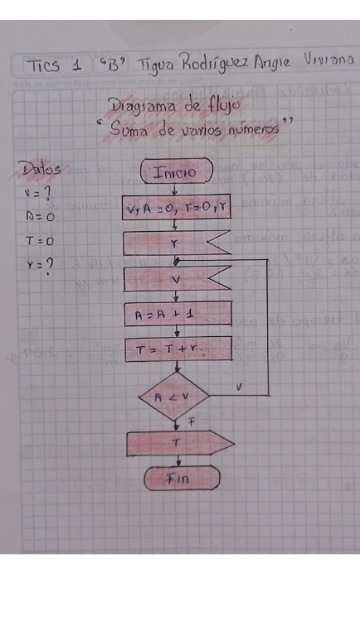 Tics 1 "B" Tigua Rodríguez Angie Viviana
Diagrama de flujo
"Suma de varios números"
Datos
v = ?
A = 0
T = 0
r = ?
Inicio
v, A = 0, T = 0, r
r
v
A = A + 1
T = T + r
A < v
v
F
T
Fin